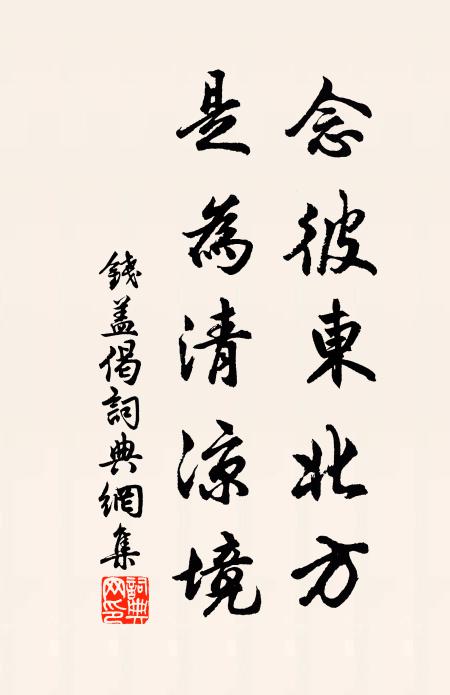 念彼東北方
是為清涼境
錢蓋偈詞典網集
詞典網印